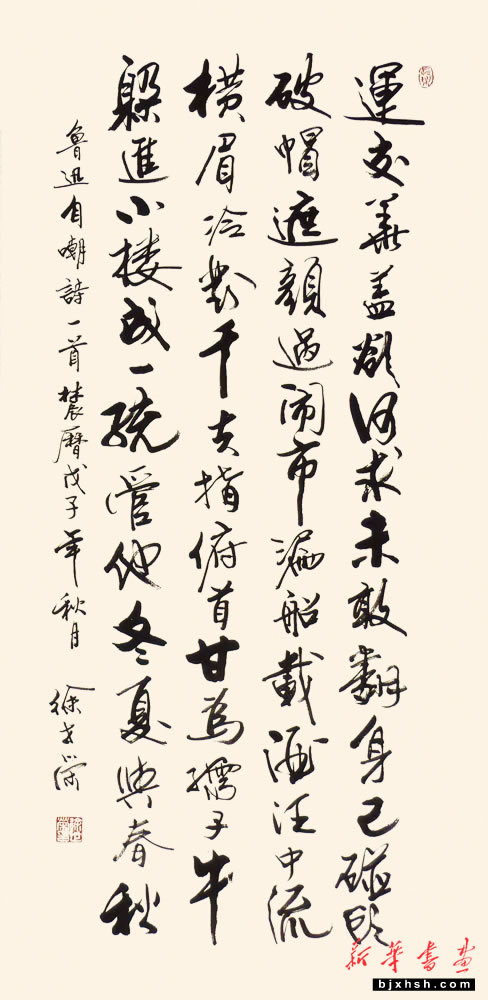 運交華蓋欲何求未敢翻身已碰頭
破帽遮顏過闹市漏船載酒泛中流
横眉冷對千夫指俯首甘為孺子牛
躲進小楼成一統管他冬夏與春秋
魯迅自嘲詩一首農曆戊子年秋月
徐
新華書畫
bjxhsh.com